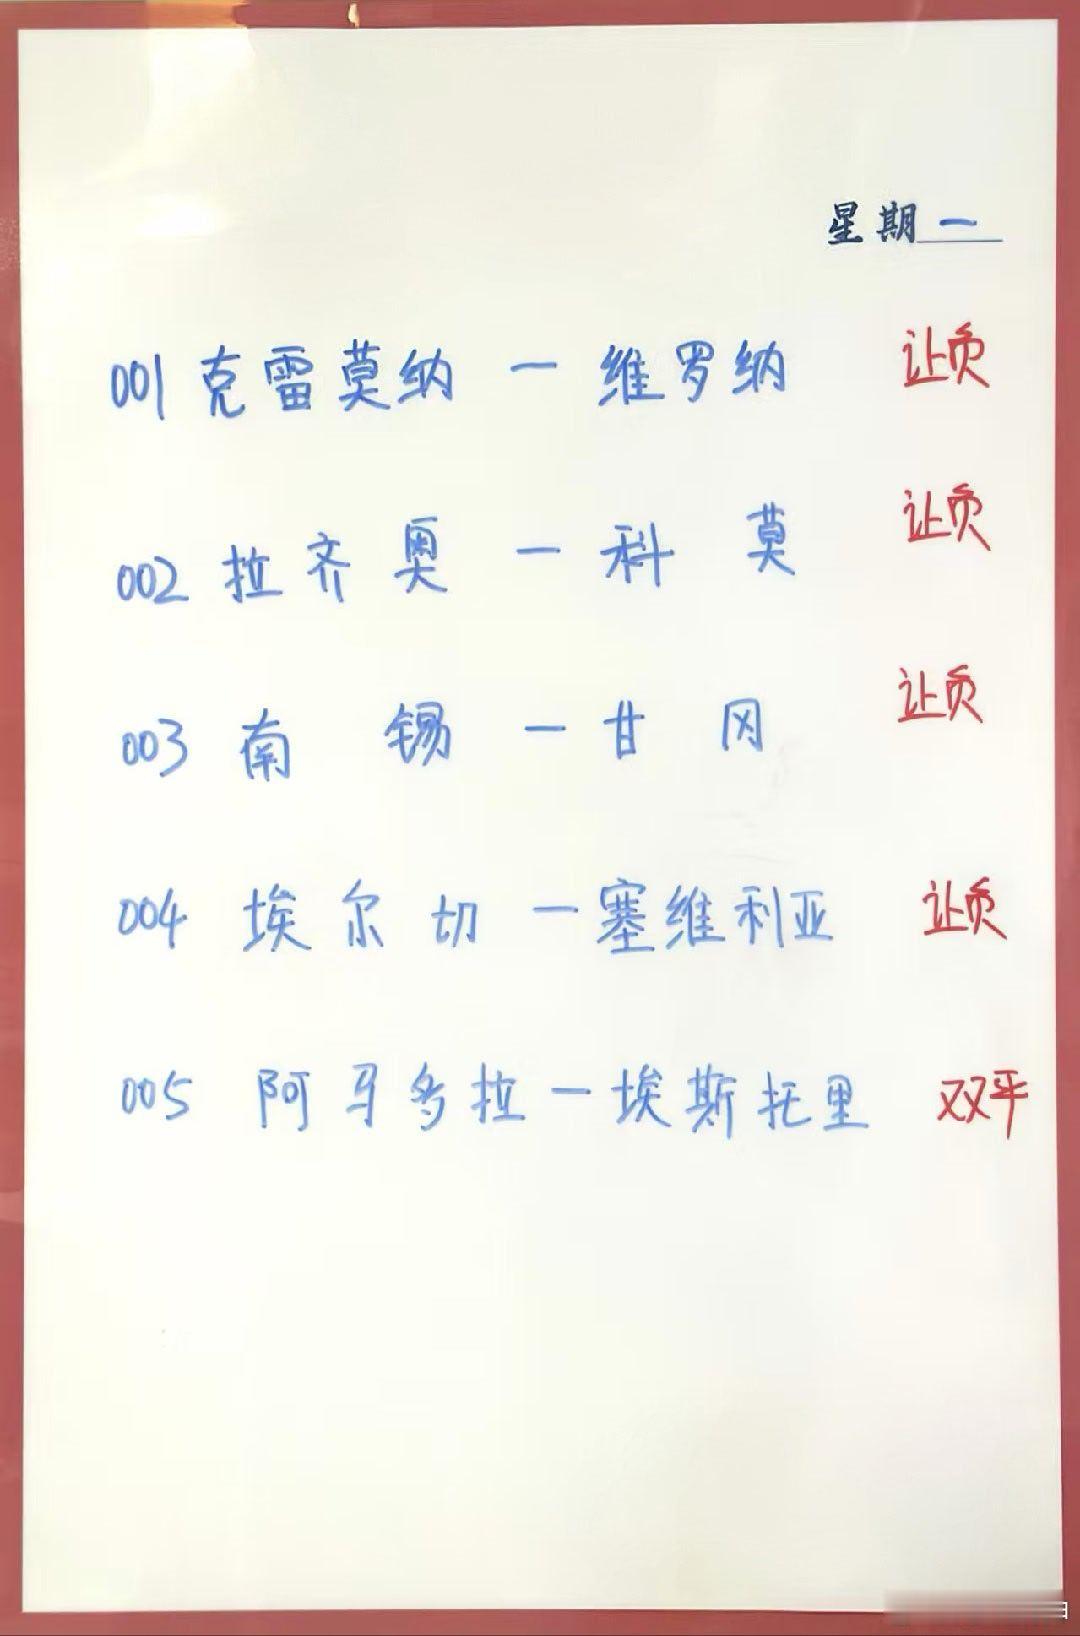 星期一
001 克雷莫纳 — 维罗纳 让负
002 拉齐奥 — 科莫 让负
003 南锡 — 甘冈 让负
004 埃尔切 — 塞维利亚 让负
005 阿马多拉 — 埃斯托里 双平
日